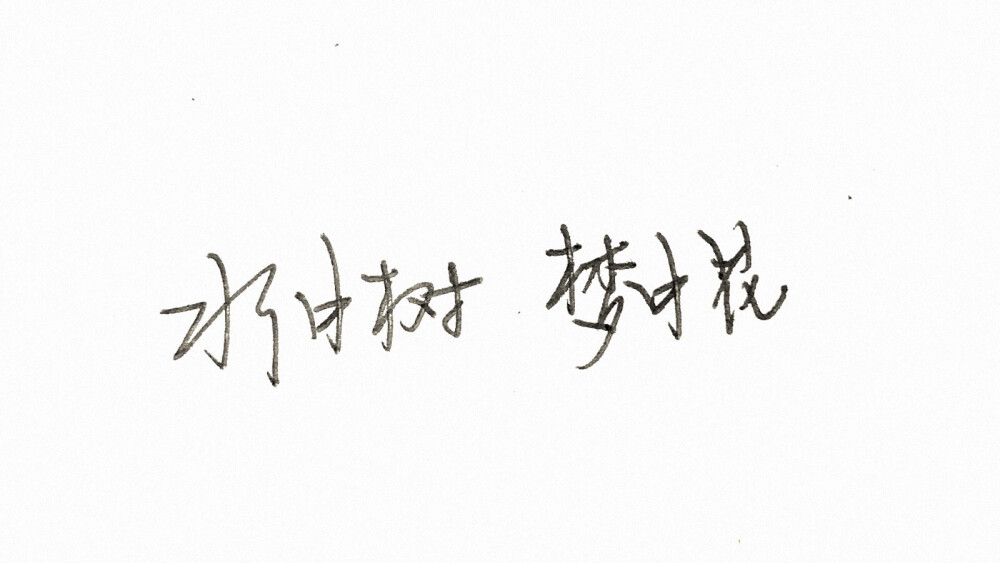 水中树 梦中花